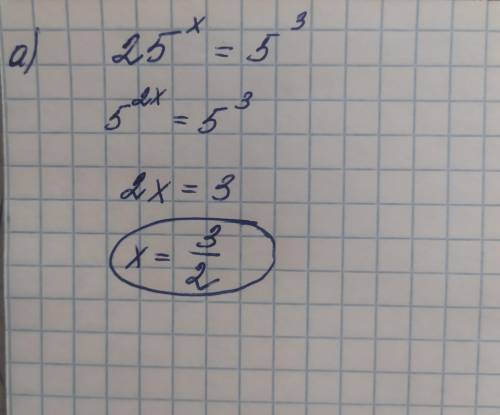 а) 25^x = 5^3
5^2x = 5^3
2x = 3
x = 3/2